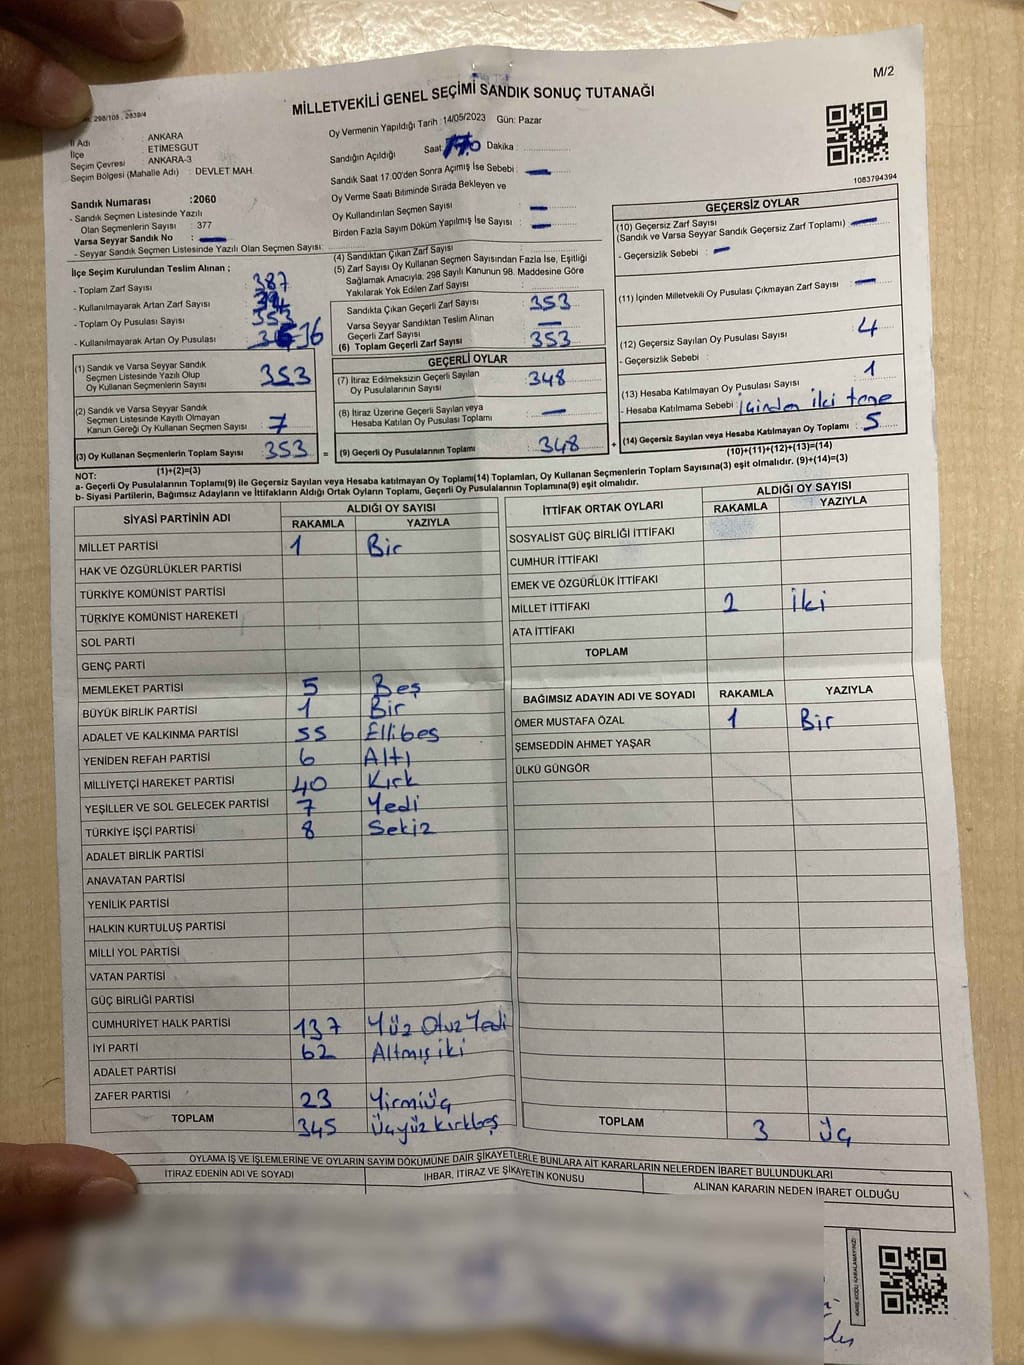 M/2
MİLLETVEKİLİ GENEL SEÇİMİ SANDIK SONUÇ TUTANAĞI
298/105 . 2839/4
İl Adı : ANKARA
İlçe : ETİMESGUT
Seçim Çevresi : ANKARA-3
Seçim Bölgesi (Mahalle Adı) : DEVLET MAH.
Oy Vermenin Yapıldığı Tarih :14/05/2023 Gün: Pazar
Sandığın Açıldığı Saat: Dakika :
Sandık Saat 17:00'den Sonra Açımış İse Sebebi : —
Oy Verme Saati Bitiminde Sırada Bekleyen ve
Oy Kullandırılan Seçmen Sayısı : —
Birden Fazla Sayım Döküm Yapılmış İse Sayısı : —
1083794394
Sandık Numarası :2060
- Sandık Seçmen Listesinde Yazılı
Olan Seçmenlerin Sayısı : 377
Varsa Seyyar Sandık No : —
- Seyyar Sandık Seçmen Listesinde Yazılı Olan Seçmen Sayısı:
İlçe Seçim Kurulundan Teslim Alınan ;
- Toplam Zarf Sayısı : 387
- Kullanılmayarak Artan Zarf Sayısı :
- Toplam Oy Pusulası Sayısı : 353
- Kullanılmayarak Artan Oy Pusulası :
(1) Sandık ve Varsa Seyyar Sandık
Seçmen Listesinde Yazılı Olup
Oy Kullanan Seçmenlerin Sayısı : 353
(2) Sandık ve Varsa Seyyar Sandık
Seçmen Listesinde Kayıtlı Olmayan
Kanun Gereği Oy Kullanan Seçmen Sayısı : 7
(3) Oy Kullanan Seçmenlerin Toplam Sayısı : 353 =
(1)+(2)=(3)
(4) Sandıktan Çıkan Zarf Sayısı :
(5) Zarf Sayısı Oy Kullanan Seçmen Sayısından Fazla İse, Eşitliği
Sağlamak Amacıyla, 298 Sayılı Kanunun 98. Maddesine Göre
Yakılarak Yok Edilen Zarf Sayısı :
Sandıkta Çıkan Geçerli Zarf Sayısı : 353
Varsa Seyyar Sandıktan Teslim Alınan
Geçerli Zarf Sayısı : —
(6) Toplam Geçerli Zarf Sayısı : 353
GEÇERLİ OYLAR
(7) İtiraz Edilmeksizin Geçerli Sayılan
Oy Pusulalarının Sayısı : 348
(8) İtiraz Üzerine Geçerli Sayılan veya
Hesaba Katılan Oy Pusulası Toplamı : —
(9) Geçerli Oy Pusulalarının Toplamı : 348 +
GEÇERSİZ OYLAR
(10) Geçersiz Zarf Sayısı
(Sandık ve Varsa Seyyar Sandık Geçersiz Zarf Toplamı) : —
- Geçersizlik Sebebi : —
(11) İçinden Milletvekili Oy Pusulası Çıkmayan Zarf Sayısı : —
(12) Geçersiz Sayılan Oy Pusulası Sayısı : 4
- Geçersizlik Sebebi :
(13) Hesaba Katılmayan Oy Pusulası Sayısı : 1
- Hesaba Katılmama Sebebi : İçinden iki tane
(14) Geçersiz Sayılan veya Hesaba Katılmayan Oy Toplamı : 5
(10)+(11)+(12)+(13)=(14)
NOT:
a- Geçerli Oy Pusulalarının Toplamı(9) ile Geçersiz Sayılan veya Hesaba katılmayan Oy Toplamı(14) Toplamları, Oy Kullanan Seçmenlerin Toplam Sayısına(3) eşit olmalıdır. (9)+(14)=(3)
b- Siyasi Partilerin, Bağımsız Adayların ve İttifakların Aldığı Ortak Oyların Toplamı, Geçerli Oy Pusulalarının Toplamına(9) eşit olmalıdır.
SİYASİ PARTİNİN ADI ALDIĞI OY SAYISI
RAKAMLA YAZIYLA
MİLLET PARTİSİ 1 Bir
HAK VE ÖZGÜRLÜKLER PARTİSİ
TÜRKİYE KOMÜNİST PARTİSİ
TÜRKİYE KOMÜNİST HAREKETİ
SOL PARTİ
GENÇ PARTİ
MEMLEKET PARTİSİ 5 Beş
BÜYÜK BİRLİK PARTİSİ 1 Bir
ADALET VE KALKINMA PARTİSİ 55 Ellibeş
YENİDEN REFAH PARTİSİ 6 Altı
MİLLİYETÇİ HAREKET PARTİSİ 40 Kırk
YEŞİLLER VE SOL GELECEK PARTİSİ 7 Yedi
TÜRKİYE İŞÇİ PARTİSİ 8 Sekiz
ADALET BİRLİK PARTİSİ
ANAVATAN PARTİSİ
YENİLİK PARTİSİ
HALKIN KURTULUŞ PARTİSİ
MİLLİ YOL PARTİSİ
VATAN PARTİSİ
GÜÇ BİRLİĞİ PARTİSİ
CUMHURİYET HALK PARTİSİ 137 Yüz Otuz Yedi
İYİ PARTİ 62 Altmış iki
ADALET PARTİSİ
ZAFER PARTİSİ 23 Yirmiüç
TOPLAM 345 Üçyüz kırkbeş
İTTİFAK ORTAK OYLARI ALDIĞI OY SAYISI
RAKAMLA YAZIYLA
SOSYALİST GÜÇ BİRLİĞİ İTTİFAKI
CUMHUR İTTİFAKI
EMEK VE ÖZGÜRLÜK İTTİFAKI
MİLLET İTTİFAKI 2 İki
ATA İTTİFAKI
TOPLAM
BAĞIMSIZ ADAYIN ADI VE SOYADI RAKAMLA YAZIYLA
ÖMER MUSTAFA ÖZAL 1 Bir
ŞEMSEDDİN AHMET YAŞAR
ÜLKÜ GÜNGÖR
TOPLAM 3 Üç
OYLAMA İŞ VE İŞLEMLERİNE VE OYLARIN SAYIM DÖKÜMÜNE DAİR ŞİKAYETLERLE BUNLARA AİT KARARLARIN NELERDEN İBARET BULUNDUKLARI
İTİRAZ EDENİN ADI VE SOYADI İHBAR, İTİRAZ VE ŞİKAYETİN KONUSU ALINAN KARARIN NEDEN İBARET OLDUĞU
KARE KODU KARALAMAYINIZ!